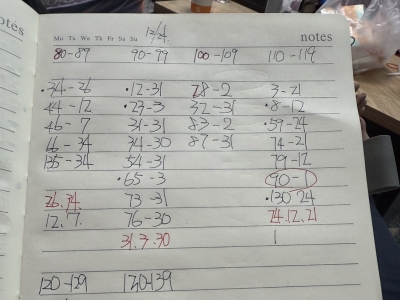 12/21
Mo Tu We Th Fr Sa Su
notes
80-89 90-99 100-109 110-119
·34-26 ·12-31 28-2 3-21
44-12 ·23-3 32-31 ·8-12
46-7 31-31 83-2 ·59-24
66-34 34-30 87-31 74-21
135-34 54-31 79-12
·65-3 90-1
26.34. 73-31 ·130-24
12.7. 76-30 24.12.21
31.3.30 1
120-129 130-139